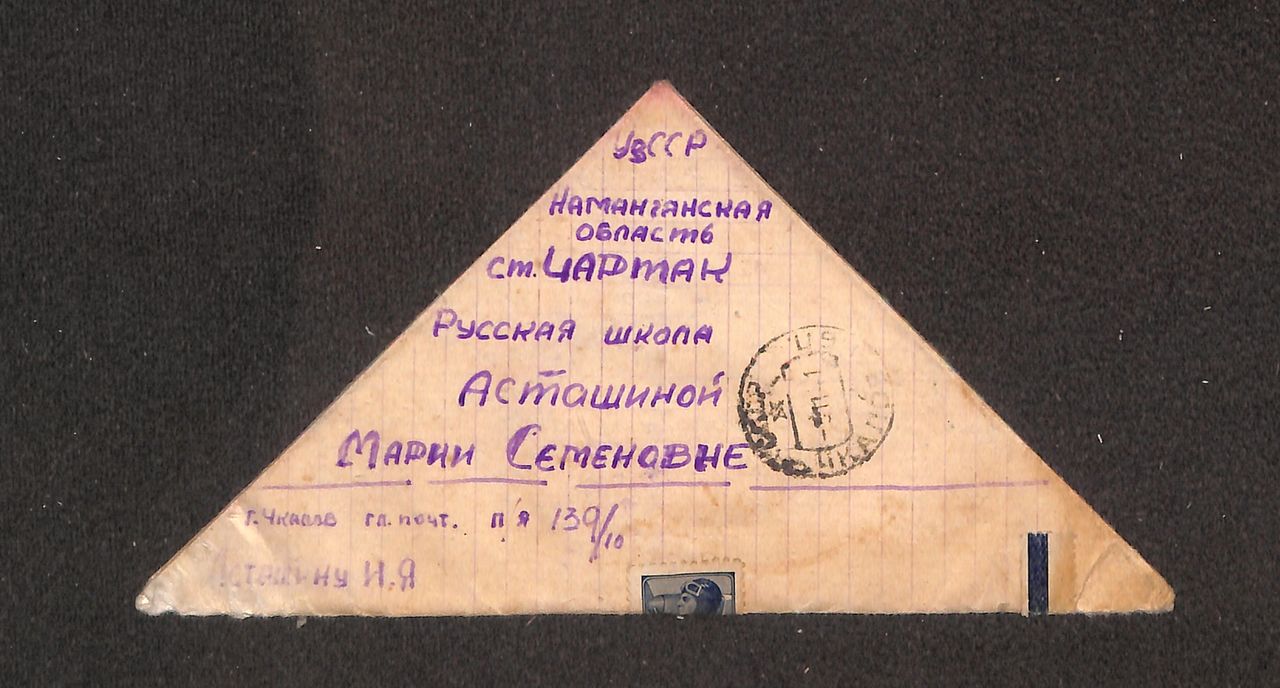 УзССР
Наманганская
область
ст. Чартак
Русская школа
Асташиной
Марии Семеновне
г. Чкалов гл. почт. п/я 139/10
Асташину И.Я